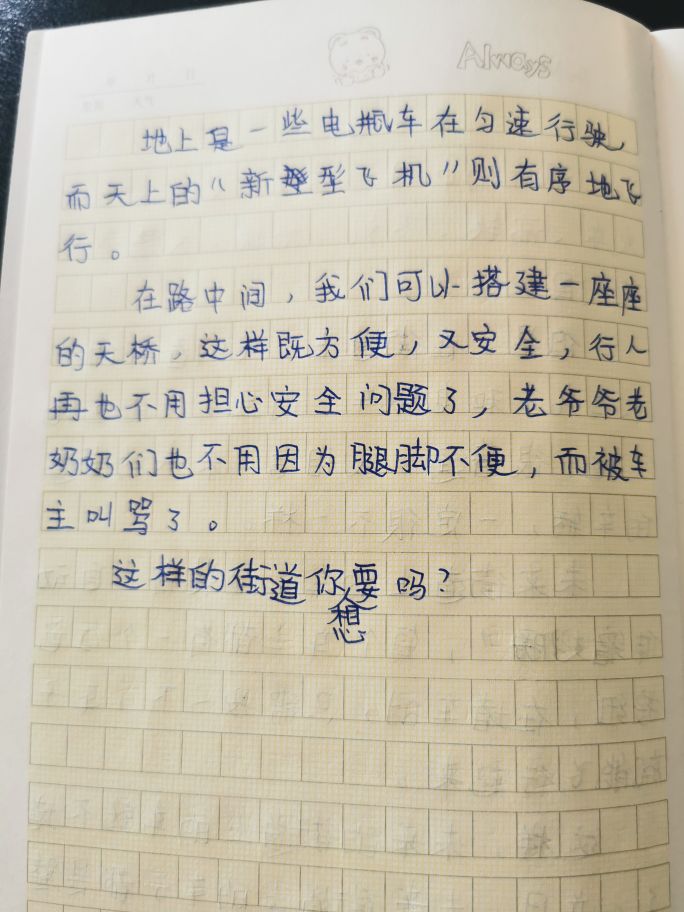 Always
地上是一些电瓶车在匀速行驶,
而天上的“新型飞机”则有序地飞
行。
在路中间,我们可以搭建一座座
的天桥,这样既方便,又安全,行人
再也不用担心安全问题了,老爷爷老
奶奶们也不用因为腿脚不便,而被车
主叫骂了。
这样的街道你想要吗?